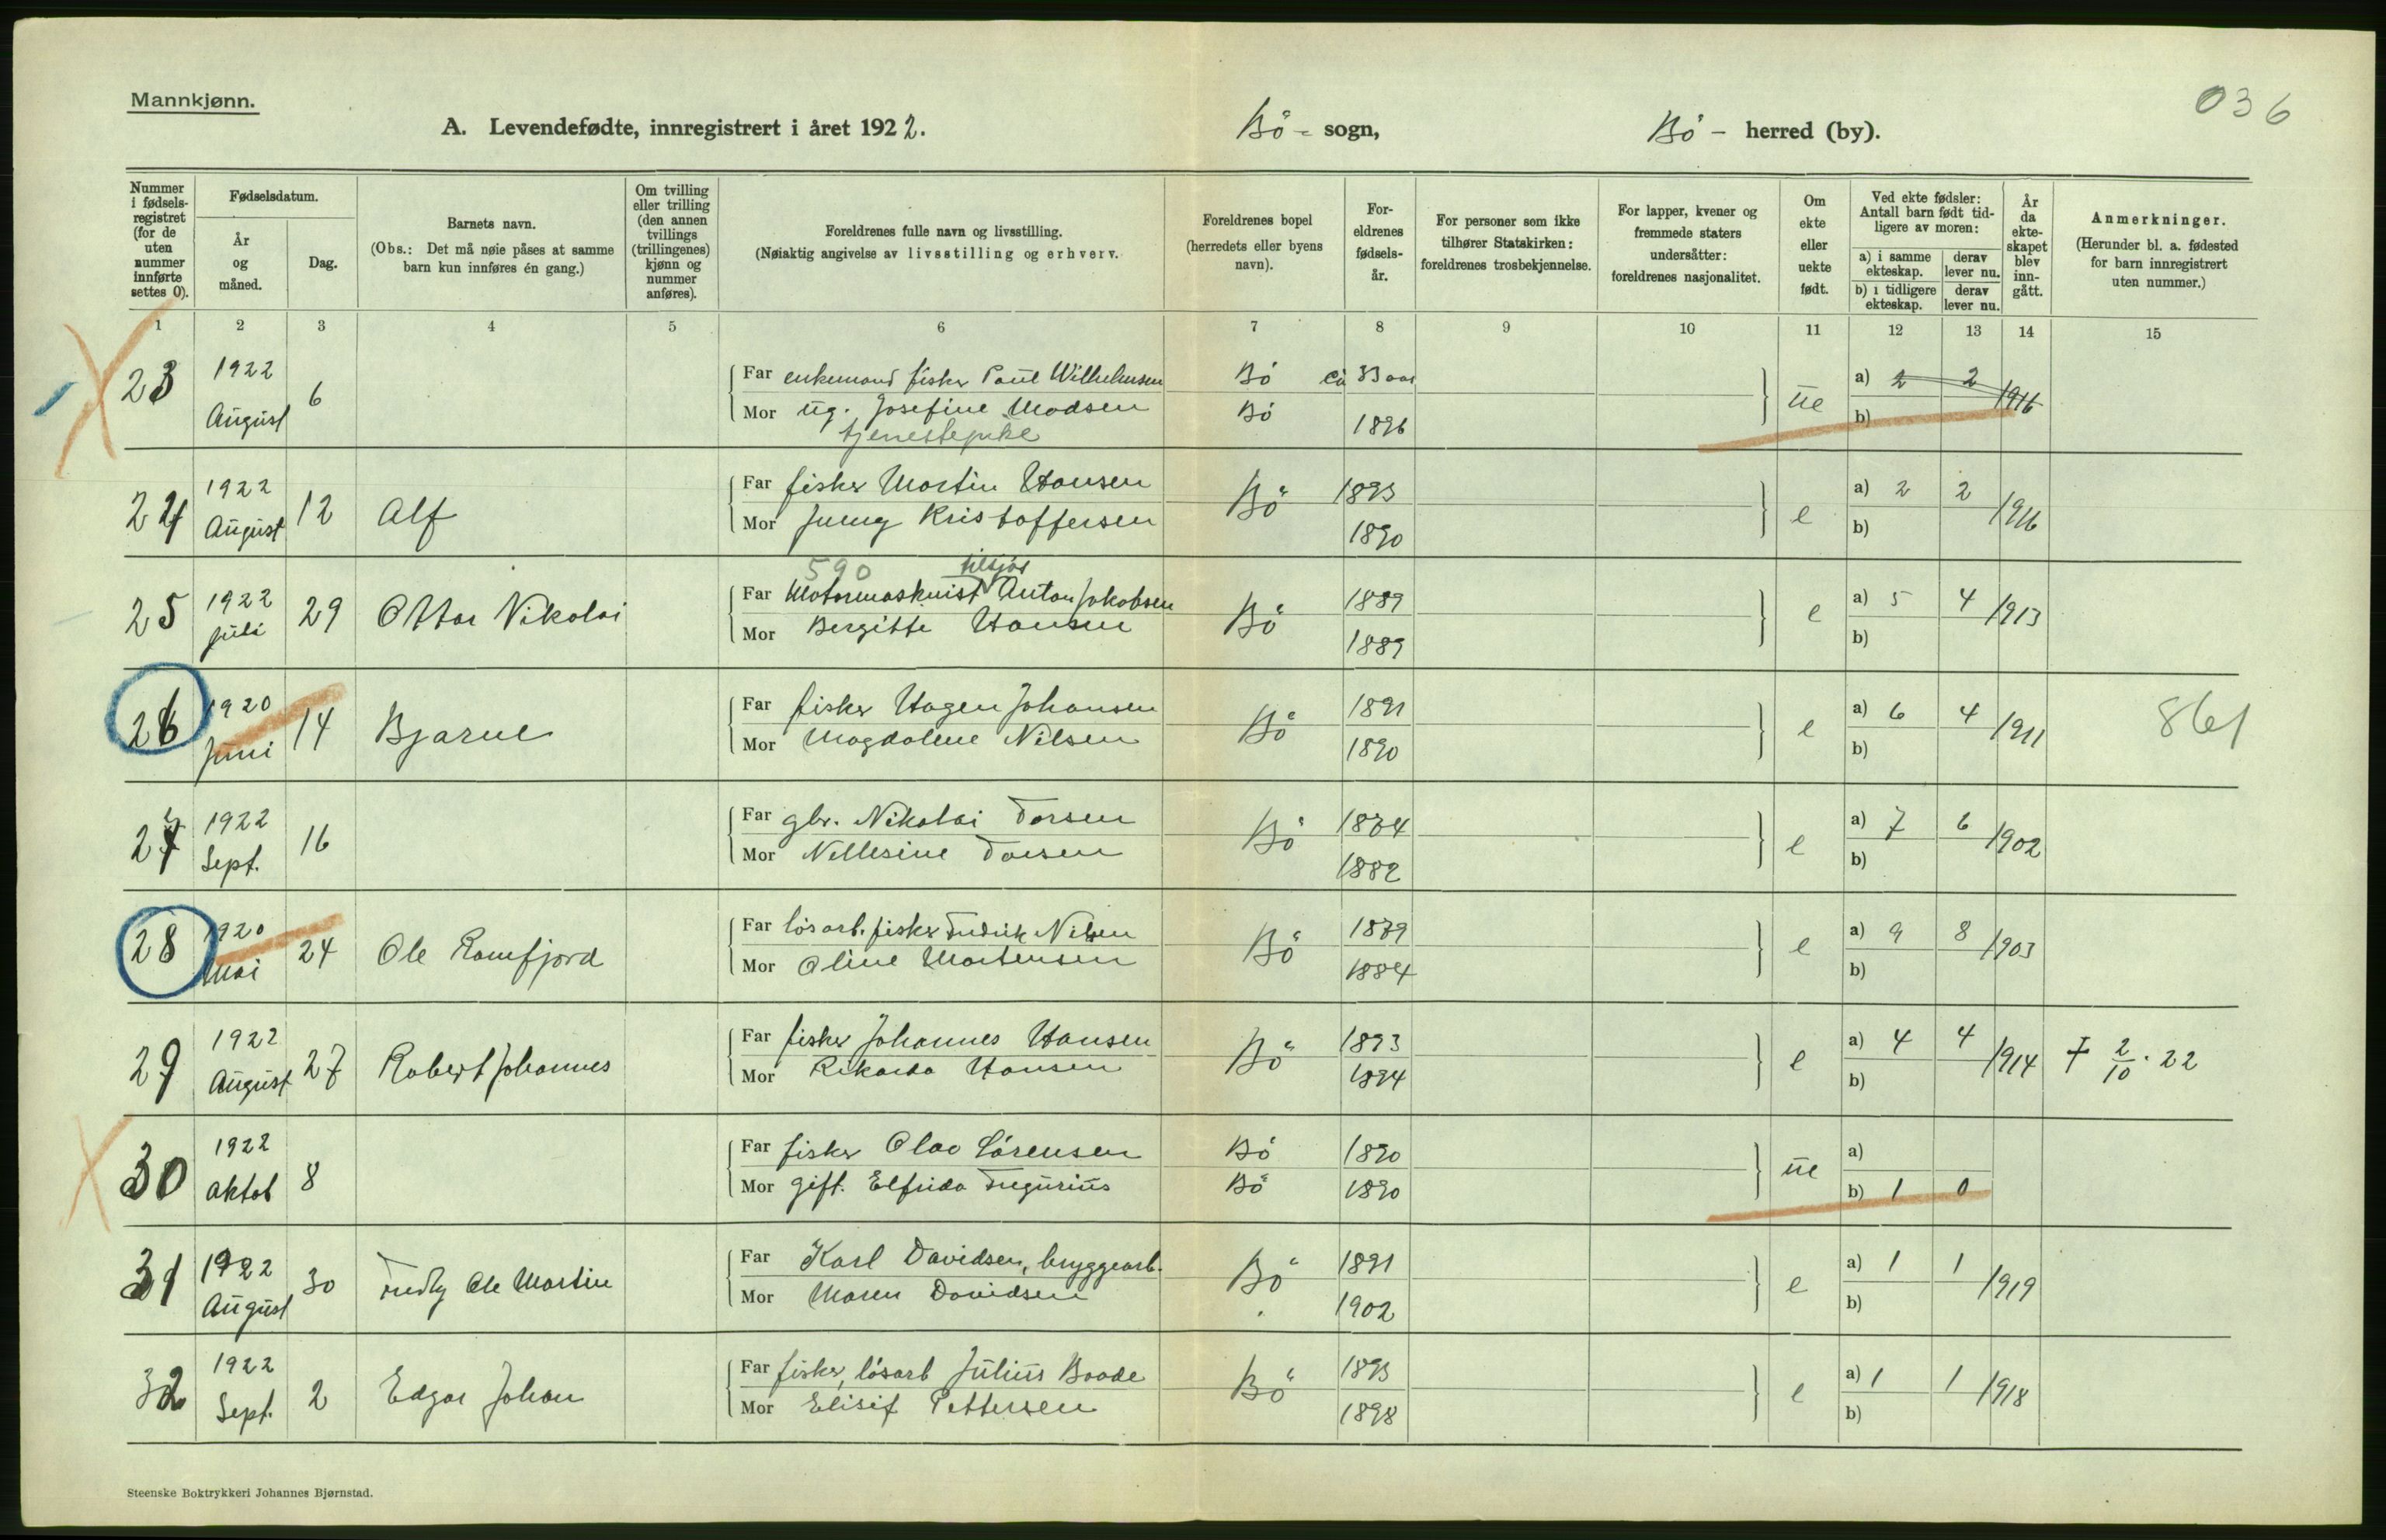 Mannkjønn.
036
A. Levendefødte, innregistrert i året 1922. Bö - sogn, Bö - herred (by).
Nummer i fødsels-registret (for de uten nummer innførte settes 0).
Fødselsdatum.
År og måned.
Dag.
Barnets navn.
(Obs.: Det må nøie påses at samme barn kun innføres én gang.)
Om tvilling eller trilling (den annen tvillings (trillingenes) kjønn og nummer anføres).
Foreldrenes fulle navn og livsstilling.
(Nøiaktig angivelse av livsstilling og erhverv.
Foreldrenes bopel (herredets eller byens navn).
For-eldrenes fødsels-år.
For personer som ikke tilhører Statskirken: foreldrenes trosbekjennelse.
For lapper, kvener og fremmede staters undersåtter: foreldrenes nasjonalitet.
Om ekte eller uekte født.
Ved ekte fødsler: Antall barn født tid-ligere av moren:
a) i samme ekteskap. derav lever nu.
b) i tidligere ekteskap. derav lever nu.
År da ekte-skapet blev inn-gått.
Anmerkninger.
(Herunder bl. a. fødested for barn innregistrert uten nummer.)
1 2 3 4 5 6 7 8 9 10 11 12 13 14 15
23 1922 August 6 Far enkemand fisker Paul Wilhelmsen Bö ca 33 aar üe a) 2 2 1916
Mor ug. Josefine Madsen Bö 1896 b)
tjenestepike
24 1922 August 12 Alf Far fisker Martin Hansen Bö 1893 e a) 2 2 1916
Mor Jenny Kristoffersen 1890 b)
590 tilsjøs
25 1922 juli 29 Ottar Nikolai Far Motormaskinist Anton Jakobsen Bö 1889 e a) 5 4 1913
Mor Bergitte Hansen 1889 b)
26 1920 Juni 14 Bjarne Far fisker Hagen Johansen Bö 1891 e a) 6 4 1911 861
Mor Magdalene Nilsen 1890 b)
27 1922 Sept. 16 Far gbr. Nikolai Torsen Bö 1874 e a) 7 6 1902
Mor Nellesine Torsen 1882 b)
28 1920 Mai 24 Ole Ramfjord Far løsarb. fisker Fredrik Nilsen Bö 1879 e a) 9 8 1903
Mor Oline Mortensen 1884 b)
29 1922 August 27 Robert Johannes Far fisker Johannes Hansen Bö 1893 e a) 4 4 1914 † 2/10. 22
Mor Rikarda Hansen 1894 b)
30 1922 oktob 8 Far fisker Olav Sørensen Bö 1890 üe a)
Mor gift. Elfrida Fregurius Bö 1890 b) 1 0
31 1922 August 30 Fredly Ole Martin Far Karl Davidsen, bryggearb. Bö 1891 e a) 1 1 1919
Mor Maren Davidsen 1902 b)
32 1922 Sept. 2 Edgar Johan Far fisker, løsarb Julius Baade Bö 1893 e a) 1 1 1918
Mor Elisif Pettersen 1898 b)
Steenske Boktrykkeri Johannes Bjørnstad.